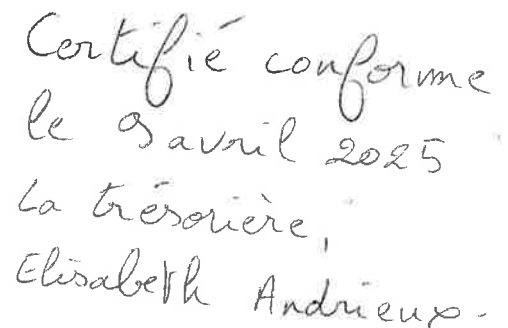 Certifié conforme
le 9 avril 2025
La trésorière,
Elisabeth Andrieux.